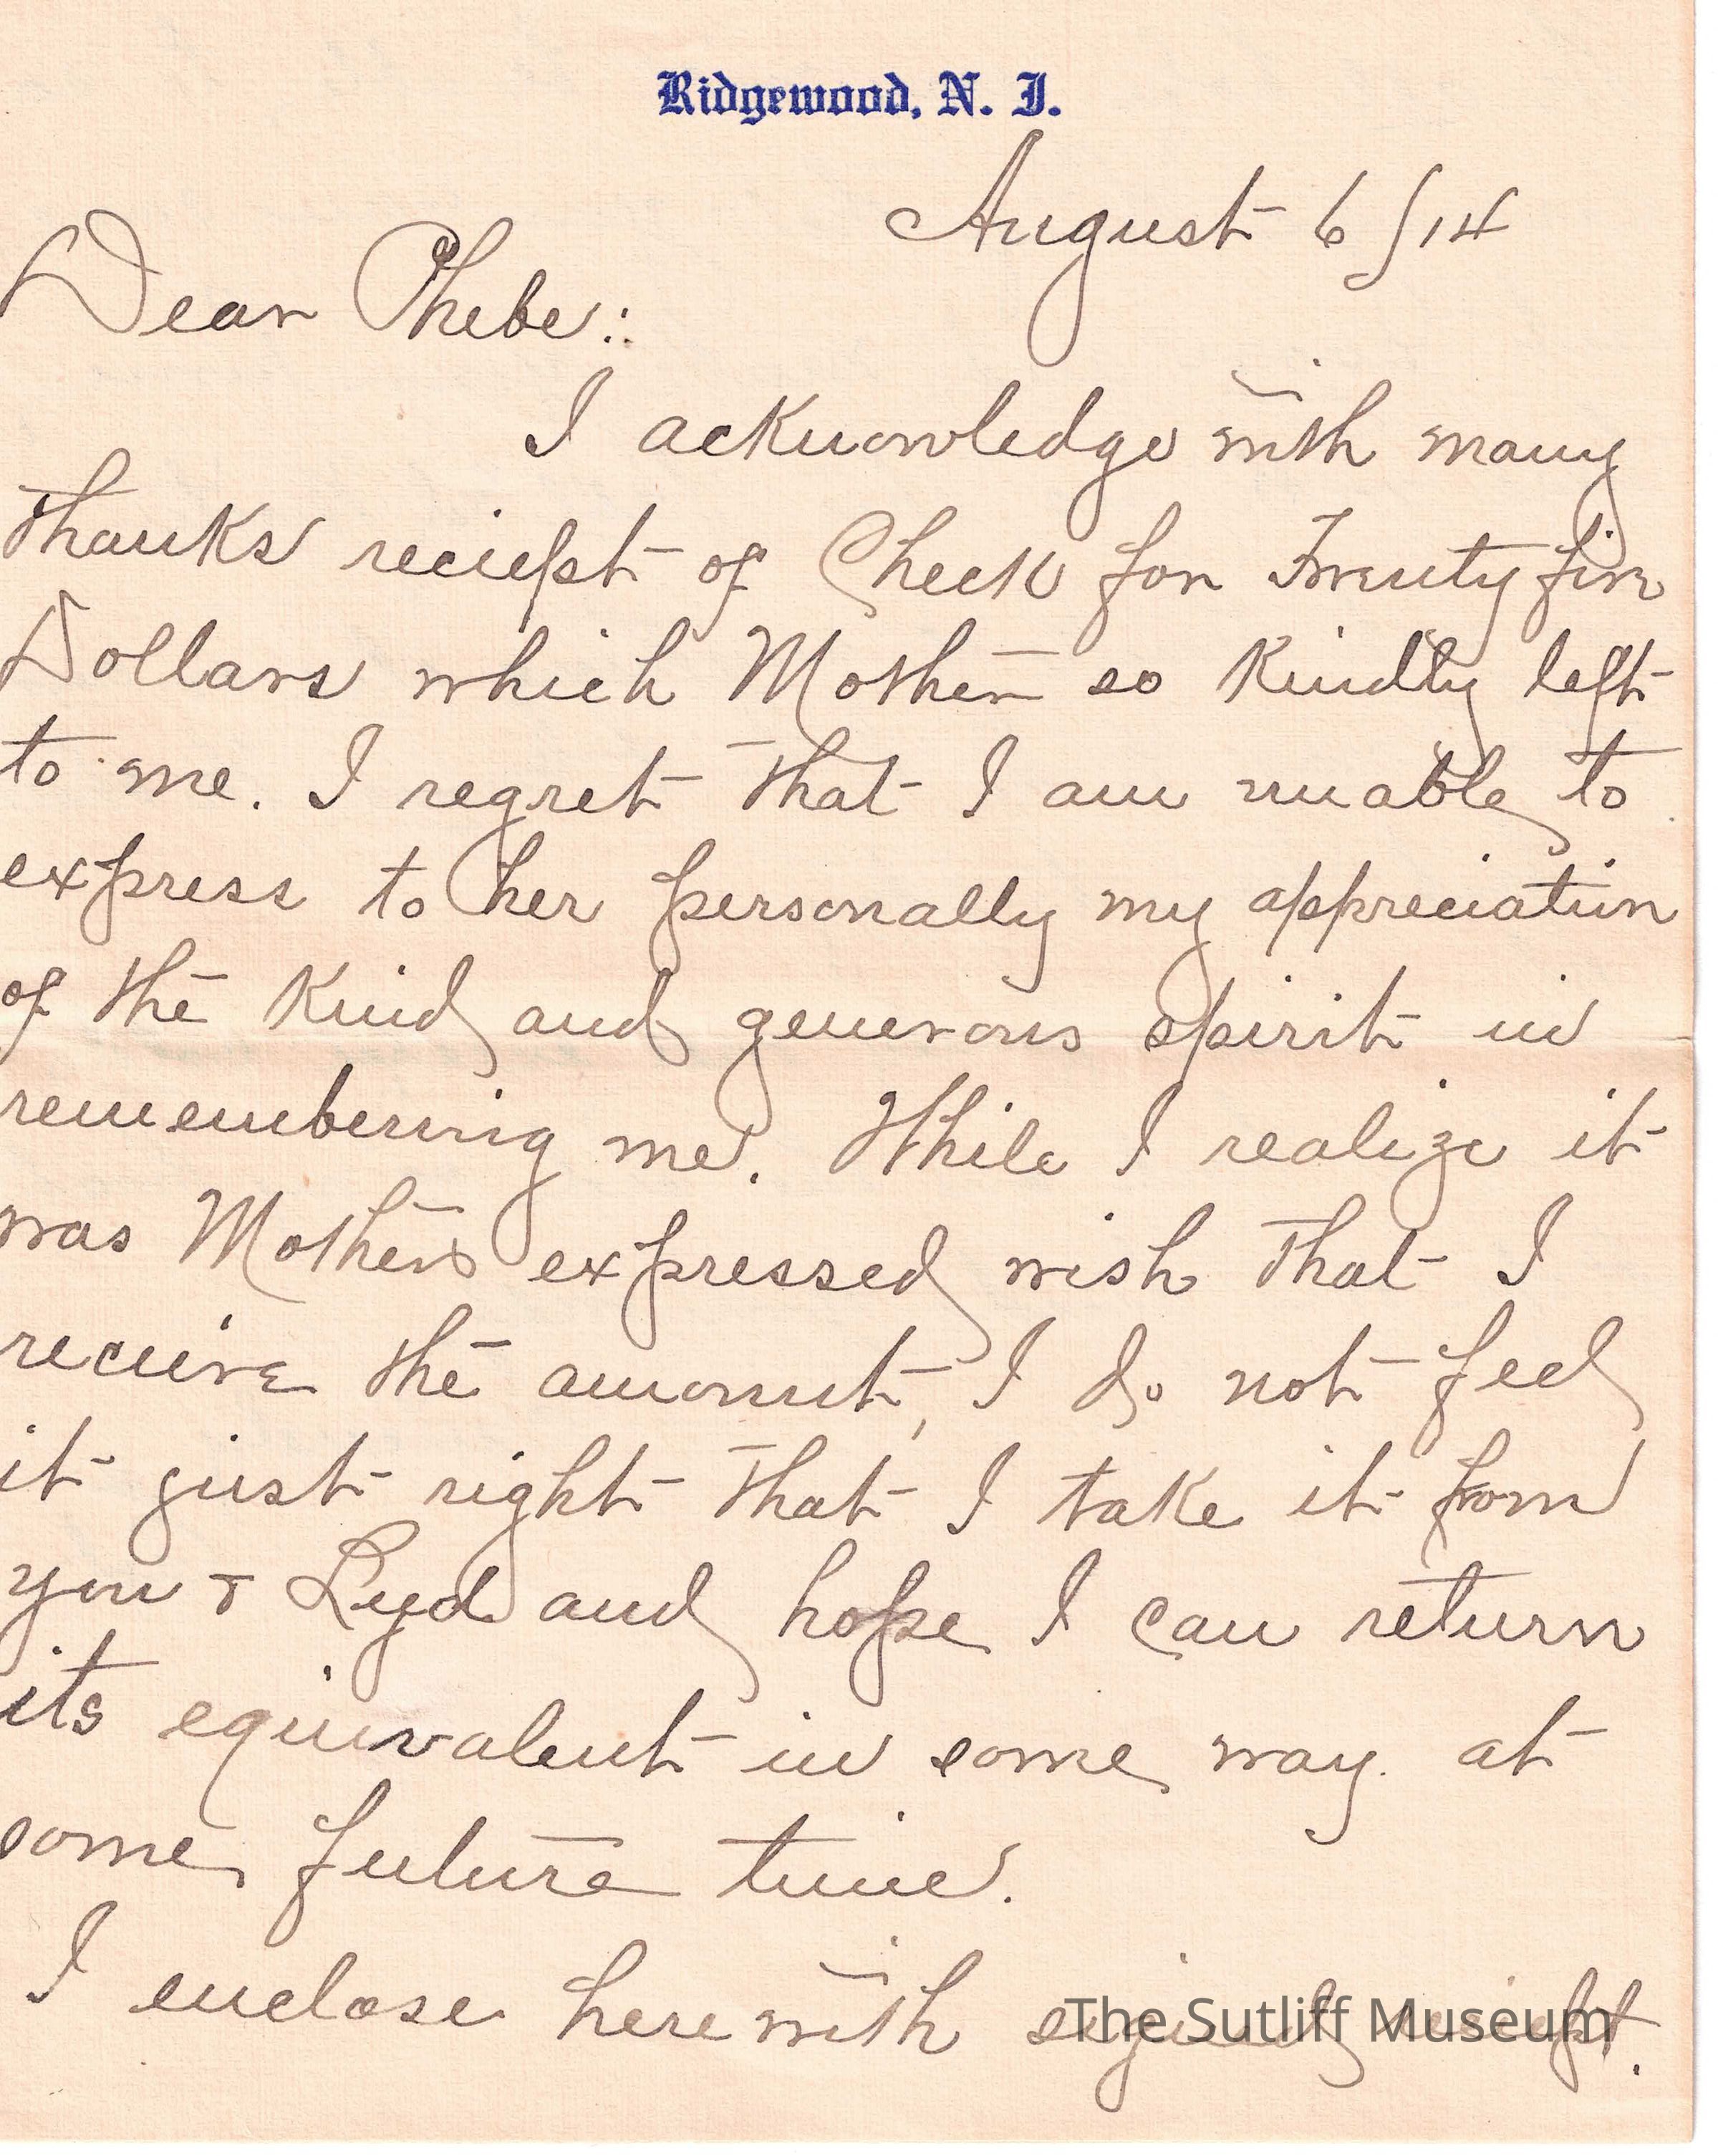 Ridgewood, N. J.
August 6/14
Dear Phebe:
I acknowledge with many
thanks reciept of Check for Twenty five
Dollars which Mother so kindly left
to me. I regret that I am unable to
express to her personally my appreciation
of the kind and generous spirit in
remembering me. While I realize it
was Mothers expressed wish that I
receive the amount, I do not feel
it just right that I take it from
you & Lyd and hope I can return
its equivalent in some way at
some future time.
I enclose herewith signed reciept.
The Sutliff Museum